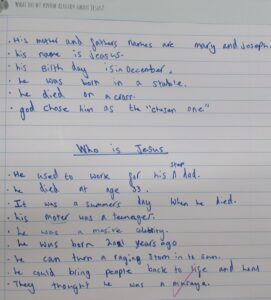 WHAT DO WE KNOW ALREADY ABOUT JESUS?
. His mother and fathers names are mary and Joseph.
. his name is Jesus.
. his Birth day is in December.
. he was born in a stable.
. he died on a cross.
. god chose him as the "chosen one."
Who is Jesus
. He used to work for his step dad.
. he died at age 33.
. It was a summers day when he died.
. his moter was a teenager.
. he was a masive celebrity.
. he was born years ago.
. he can turn a raging storm in to sun.
. he could bring people back to life and heal
. They thought he was a